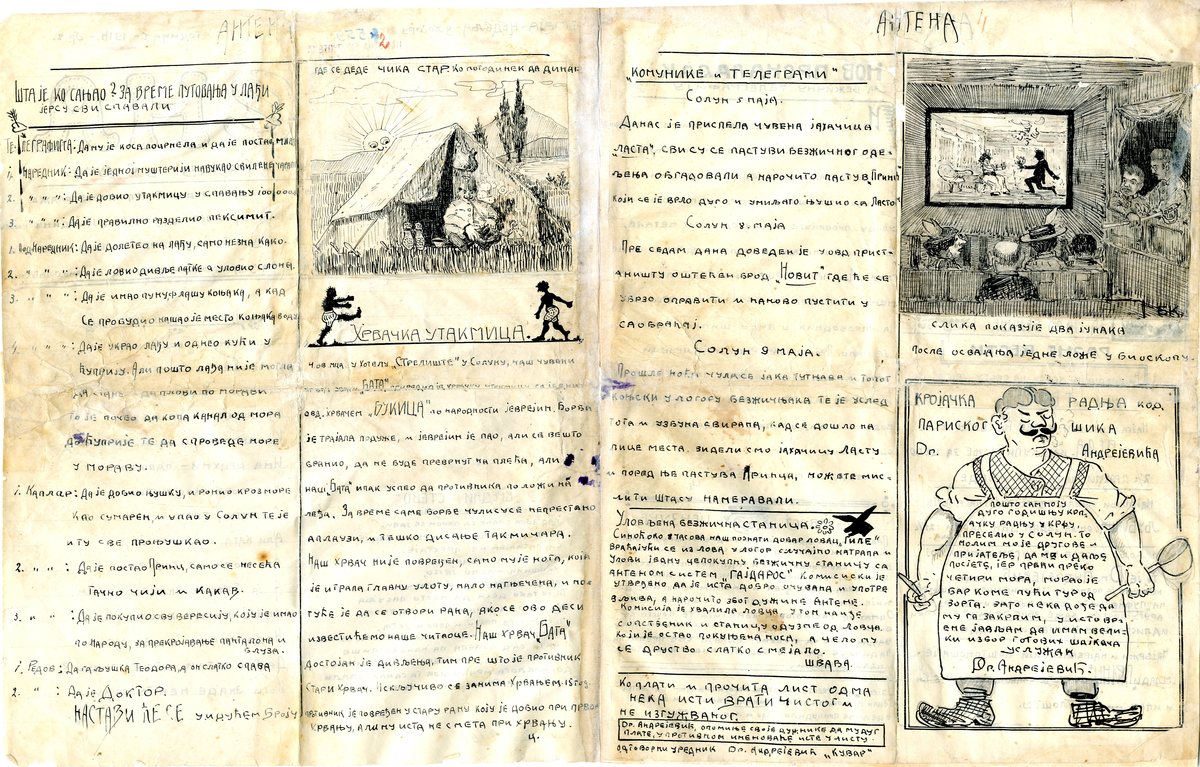 АНТЕНА
2
ШТА ЈЕ КО САЊАО? ЗА ВРЕМЕ ПУТОВАЊА У ЛАЂИ
ЈЕР СУ СВИ СПАВАЛИ
ТЕЛЕГРАФИСТА: ДА МУ ЈЕ КОСА ПОЦРНЕЛА И ДА ЈЕ ПОСТАО
1. НАРЕДНИК: ДА ЈЕ ЈЕДНОЈ МУШТЕРИЈИ НАВУКАО СВИЛЕНЕ
2. " " " : ДА ЈЕ ДОБИО УТАКМИЦУ У СПАВАЊУ 100,000.
3. " " " : ДА ЈЕ ПРАВИЛНО РАЗДЕЛИО ПЕКСИМИТ.
1. ПОДНАРЕДНИК: ДА ЈЕ ДОЛЕТЕО НА ЛАЂУ, САМО НЕЗНА КАКО.
2. " " " : ДА ЈЕ ЛОВИО ДИВЉЕ ПАТКЕ А УЛОВИО СЛОНА.
3. " " " : ДА ЈЕ ИМАО ПУНУ ФЛАШУ КОЊАКА, А КАД
СЕ ПРОБУДИО НАШАО ЈЕ МЕСТО КОЊАКА ВОДУ
4. " " " : ДА ЈЕ УКРАО ЛАЂУ И ОДНЕО КУЋИ У
ЋУПРИЈУ. АЛИ ПОШТО ЛАЂА НИЈЕ МОГЛА
ДА ПЛОВИ ПО МОРАВИ
ТО ЈЕ ПОЧЕО ДА КОПА КАНАЛ ОД МОРА
ДО ЋУПРИЈЕ ТЕ ДА СПРОВЕДЕ МОРЕ
У МОРАВУ.
1. КАПЛАР: ДА ЈЕ ДОБИО ЊУШКУ, И РОНИО КРОЗ МОРЕ
КАО СУМАРЕН, УПАО У СОЛУН ТЕ ЈЕ
И ТУ СВЕ ПРОЊУШКАО.
2. " " : ДА ЈЕ ПОСТАО ПРИНЦ, САМО СЕ НЕСЕЋА
ТАЧНО ЧИЈИ И КАКАВ.
3. " " : ДА ЈЕ ПОКУПИО СВУ ВЕРЕСИЈУ, КОЈУ ЈЕ ИМАО
ПО НАРОДУ, ЗА ПРЕКРОЈАВАЊЕ ПАНТАЛОНА И
БЛУЗА.
1. РЕДОВ: ДА ГА ЊУШКА ТЕОДОРА А ОН СЛАТКО СПАВА
2. " " : ДА ЈЕ ДОКТОР.
НАСТАВИЋЕ СЕ У ИДУЋЕМ БРОЈУ
ГДЕ СЕ ДЕДЕ ЧИКА СТАРКО ПОГОДИ НЕК ДА ДИНАР
ХРВАЧКА УТАКМИЦА.
У ХОТЕЛУ „СТРЕЛИШТЕ" У СОЛУНУ, НАШ ЧУВЕНИ
„БАТА"
ОВД. ХРВАЧЕМ „БУКИЦА" ПО НАРОДНОСТИ ЈЕВРЕЈИН. БОРБА
ЈЕ ТРАЈАЛА ПОДУЖЕ, И ЈЕВРЕЈИН ЈЕ ПАО, АЛИ СЕ ВЕШТО
БРАНИО, ДА НЕ БУДЕ ПРЕВРНУТ НА ПЛЕЋА, АЛИ
НАШ „БАТА" ИПАК УСПЕО ДА ПРОТИВНИКА ПОЛОЖИ НА
ЛЕЂА. ЗА ВРЕМЕ САМЕ БОРБЕ ЧУЛИ СУ СЕ НЕПРЕСТАНО
АПЛАУЗИ, И ТЕШКО ДИСАЊЕ ТАКМИЧАРА.
НАШ ХРВАЧ НИЈЕ ПОВРЕЂЕН, САМО МУ ЈЕ НОГА, КОЈА
ЈЕ ИГРАЛА ГЛАВНУ УЛОГУ, МАЛО НАГЊЕЧЕНА, И МО-
ГУЋЕ ЈЕ ДА СЕ ОТВОРИ РАНА, АКО СЕ ОВО ДЕСИ
ИЗВЕСТИЋЕМО НАШЕ ЧИТАОЦЕ. НАШ ХРВАЧ „БАТА"
ДОСТОЈАН ЈЕ ДИВЉЕЊА, ТИМ ПРЕ ШТО ЈЕ ПРОТИВНИК
СТАРИ ХРВАЧ. ИСКЉУЧИВО СЕ ЗАНИМА ХРВАЊЕМ 15 ГОД
ПРОТИВНИК ЈЕ ПОВРЕЂЕН У СТАРУ РАНУ КОЈУ ЈЕ ДОБИО ПРИ ПРВОМ
ХРВАЊУ, АЛИ МУ ИСТА НЕ СМЕТА ПРИ ХРВАЊУ.
Ц.
АНТЕНА
„КОМУНИКЕ И ТЕЛЕГРАМИ"
СОЛУН 5 МАЈА.
ДАНАС ЈЕ ПРИСПЕЛА ЧУВЕНА ЈАХАЧИЦА
„ЛАСТА", СВИ СУ СЕ ПАСТУВИ БЕЗЖИЧНОГ ОДЕ-
ЉЕЊА ОБГАДОВАЛИ А НАРОЧИТО ПАСТУВ „ПРИНЦ"
КОЈИ СЕ ЈЕ ВРЛО ДУГО И УМИЉАТО ЊУШИО СА ЛАСТОМ
СОЛУН 8. МАЈА
ПРЕ СЕДАМ ДАНА ДОВЕДЕН ЈЕ У ОВД. ПРИСТ-
АНИШТУ ОШТЕЋЕН БРОД „НОВИТ" ГДЕ ЋЕ СЕ
УБРЗО ОПРАВИТИ И НАНОВО ПУСТИТИ У
САОБРАЋАЈ.
СОЛУН 9 МАЈА.
ПРОШЛЕ НОЋИ ЧУЛА СЕ ЈАКА ТУТЊАВА И ТОПОТ
КОЊСКИ У ЛОГОРУ БЕЗЖИЧЊАКА ТЕ ЈЕ УСЛЕД
ТОГА И УЗБУНА СВИРАНА, КАД СЕ ДОШЛО НА
ЛИЦЕ МЕСТА, ВИДЕЛИ СМО ЈАХАЧИЦУ ЛАСТУ
И ПОРЕД ЊЕ ПАСТУВА ПРИНЦА, МОЖЕТЕ МИС-
ЛИТИ ШТА СУ НАМЕРАВАЛИ.
УЛОВЉЕНА БЕЗЖИЧНА СТАНИЦА.
СИНОЋ ОКО 8 ЧАСОВА НАШ ПОЗНАТИ ДОБАР ЛОВАЦ „ГИЛЕ"
ВРАЋАЈУЋИ СЕ ИЗ ЛОВА У ЛОГОР СЛУЧАЈНО НАТРАПА И
УЛОВИ ЈЕДНУ ЦЕЛОКУПНУ БЕЗЖИЧНУ СТАНИЦУ СА
АНТЕНОМ СИСТЕМ „ГАЈДАРОС". КОМИСИСКИ ЈЕ
УТВРЂЕНО ДА ЈЕ ИСТА ДОБРО ОЧУВАНА И УПОТРЕ
БЉИВА, А НАРОЧИТО ЗБОГ ДУЖИНЕ АНТЕНЕ.
КОМИСИЈА ЈЕ ХВАЛИЛА ЛОВЦА, У ТОМ НАИЂЕ
СОПСТВЕНИК И СТАНИЦУ ОДУЗЕ ОД ЛОВЦА
КОЈИ ЈЕ ОСТАО ПОКУЊЕНА НОСА, А ЧЕЛО МУ
СЕ ДРУСТВО СЛАТКО СМЕЈАЛО.
ШВАБА.
КО ПЛАТИ И ПРОЧИТА ЛИСТ ОДМА
НЕКА ИСТИ ВРАТИ ЧИСТОГ И
НЕ ИЗГУЖВАНОГ.
DR. АНДРЕЈЕВИЋ, ОПОМИЊЕ СВОЈЕ ДУЖНИКЕ ДА МУ ДУГ
ПЛАТЕ, У ПРОТИВНОМ ИМЕНОВАЋЕ ИСТЕ У ЛИСТУ.
ОДГОВОРНИ УРЕДНИК DR. АНДРЕЈЕВИЋ „КУВАР"
БК.
СЛИКА ПОКАЗУЈЕ ДВА ЈУНАКА
ПОСЛЕ ОСВАЈАЊА ЈЕДНЕ ЛОЖЕ У БИОСКОПУ
КРОЈАЧКА РАДЊА КОД
ПАРИСКОГ ШИКА
DR. АНДРЕЈЕВИЋА
ПОШТО САМ МОЈУ
ДУГОГОДИШЊУ КРО
АЧКУ РАДЊУ У КРФУ,
ПРЕСЕЛИО У СОЛУН. ТО
МОЛИМ МОЈЕ ДРУГОВЕ И
ПРИЈАТЕЉЕ, ДА МЕ И ДАЉЕ
ПОСЈЕТЕ, ЈЕР ПРЕЋИ ПРЕКО
ЧЕТИРИ МОРА, МОРАО ЈЕ
БАР КОМЕ ПУЋИ ТУР ОД
ЗОРТА. ЗАТО НЕКА ДОЂЕ ДА
МУ ГА ЗАКРПИМ, У ИСТО ВРЕ
МЕ ЈАВЉАМ ДА ИМАМ ВЕЛИ-
КИ ИЗБОР ГОТОВИХ ШАЈКАЧА
УСЛУЖАН
DR. АНДРЕЈЕВИЋ.